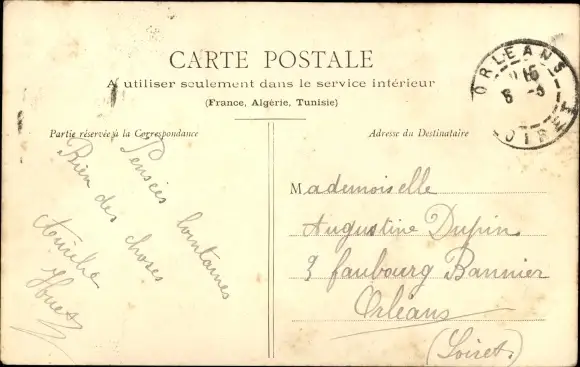 CARTE POSTALE
A utiliser seulement dans le service intérieur
(France, Algérie, Tunisie)
Partie réservée à la Correspondance
Adresse du Destinataire
ORLEANS
LOIRET
Pensées lointaines
Bien des choses
Amélie
Mademoiselle
Augustine Dupin
faubourg Bannier
Orléans
(Loiret)